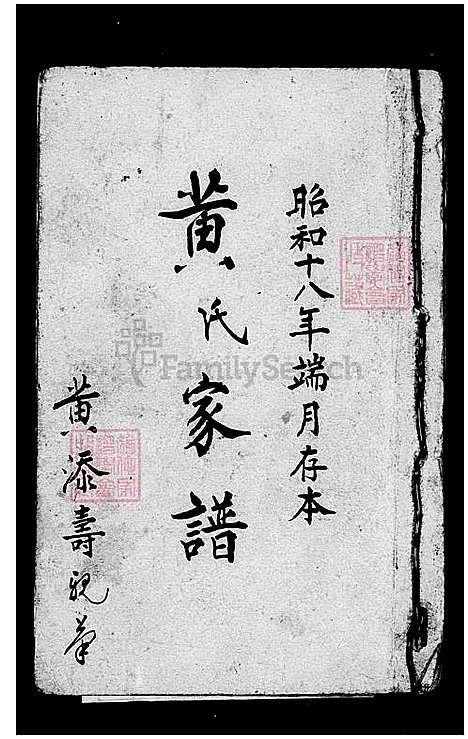 昭和十八年端月存本
黃氏家譜
黃添壽親筆
FamilySearch